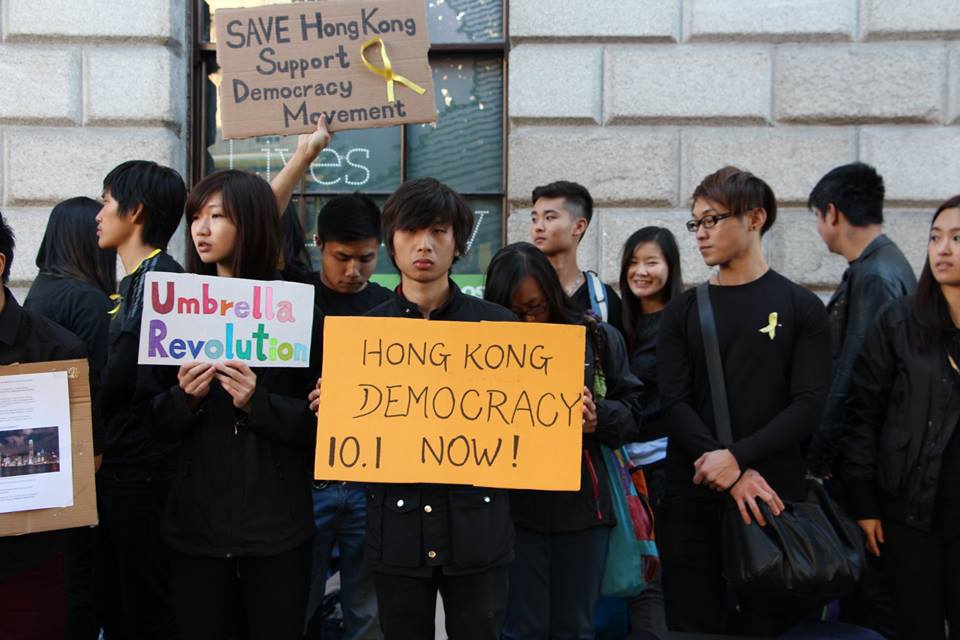 SAVE Hong Kong
Support
Democracy
Movement
Lives
Umbrella
Revolution
HONG KONG
DEMOCRACY
10.1 NOW!